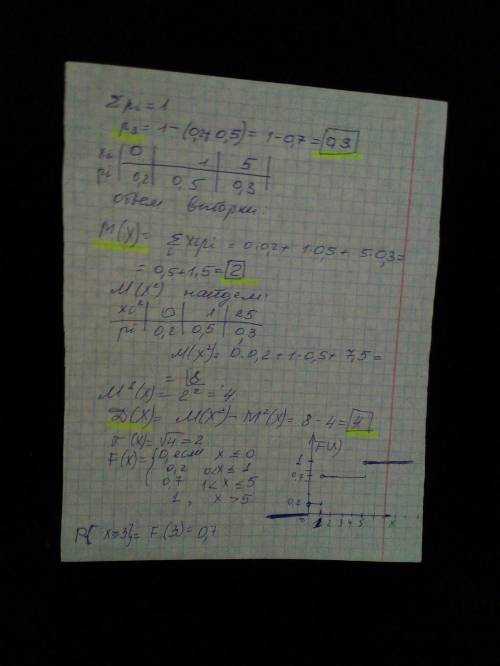 Σpi = 1
p3 = 1 - (0,2+0,5) = 1 - 0,7 = 0,3
xi | 0 | 1 | 5
pi | 0,2 | 0,5 | 0,3
объем выборки:
M(X) = Σxipi = 0·0,2 + 1·0,5 + 5·0,3 =
= 0,5+1,5 = 2
M(X²) найдем:
xi² | 0 | 1 | 25
pi | 0,2 | 0,5 | 0,3
M(X²) = 0·0,2 + 1·0,5 + 7,5 =
= 8
M²(X) = 2² = 4.
D(X) = M(X²) - M²(X) = 8 - 4 = 4
σ(X) = √4 = 2
F(X) = { 0, если x ≤ 0
0,2 0<x≤1
0,7 1<x≤5
1, x>5
F(x)
1
0,7
0,2
0 1 2 3 4 5 x
P{x<3} = F(3) = 0,7